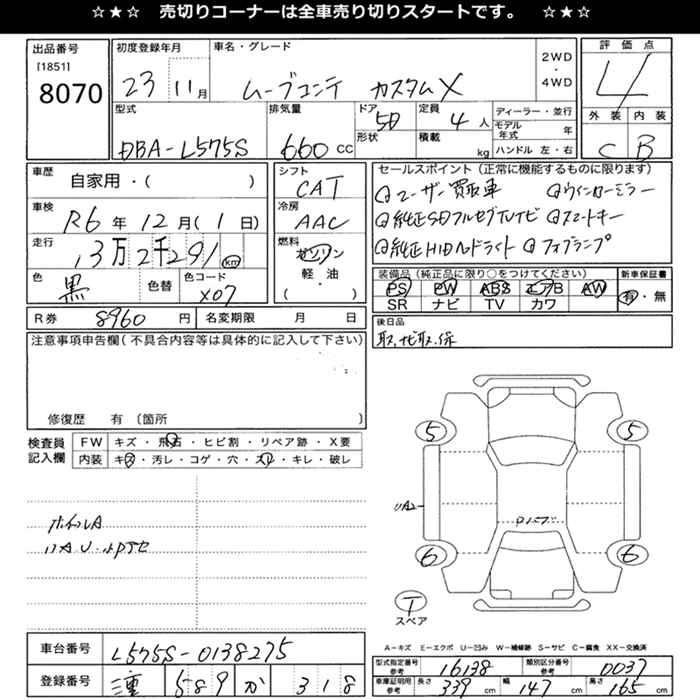 ☆★☆ 売切りコーナーは全車売り切りスタートです。 ☆★☆
出品番号 [1851] 8070
初度登録年月 23 11月
車名・グレード ムーブコンテ カスタムX
2WD・4WD
評価点 4
外装 C 内装 B
型式 DBA-L575S
排気量 660 CC
ドア 5D 形状
定員 4人 積載 kg
ディーラー・並行
モデル年式 年
ハンドル 左・右
車歴 自家用・( )
車検 R6年12月(1日)
走行 13万2千291 km
色 黒 色替 色コード X07
シフト CAT
冷房 AAC
燃料 ガソリン 軽・油 ( )
セールスポイント(正常に機能するものに限ります)
ユーザー買取車 ウインローミラー
純正SDフルセグTVナビ スマートキー
純正HIDヘッドライト フォグランプ
装備品(純正品に限り○をつけてください) 新車保証書
PS PW ABS エアB AW 有・無
SR ナビ TV カワ
R券 8960円 名変期限 月 日
後日品
取,ナビ取.保
注意事項申告欄(不具合内容等は具体的に記入して下さい)
修復歴 有〔箇所
検査員記入欄
FW キズ・飛石・ヒビ割・リペア跡・X要
内装 キズ・汚レ・コゲ・穴・スレ・キレ・破レ
ホイルA
5 5
UA2
6 6
T
スペア
A-キズ E-エクボ U-凹み W-補修跡 S-サビ C-腐食 XX-交換済
車台番号 L575S-0138275
登録番号 三重 589 か 318
型式指定番号 参考 16138 類別区分番号 参考 0037
車庫証明用 参考 長さ 339 cm 幅 147 cm 高さ 165 cm